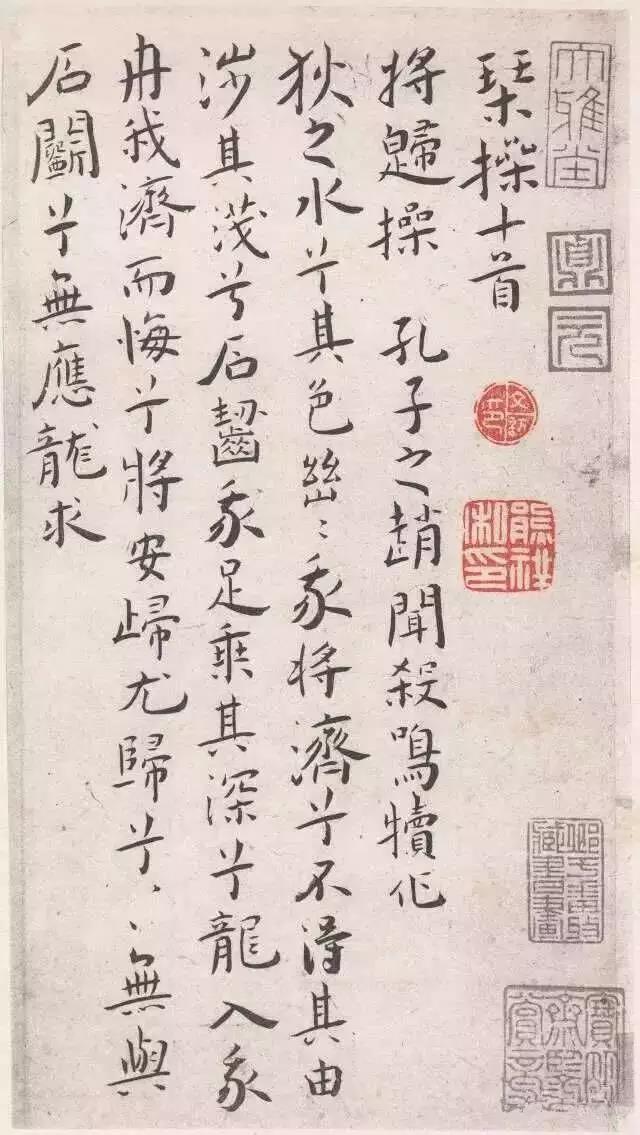 琹操十首
將歸操 孔子之趙聞殺鳴犢作
狄之水兮其色幽〻我將濟兮不得其由
涉其淺兮石齧我足乘其深兮龍入我
舟我濟而悔兮將安歸尤歸兮〻無與
石鬭兮無應龍求
大雅堂